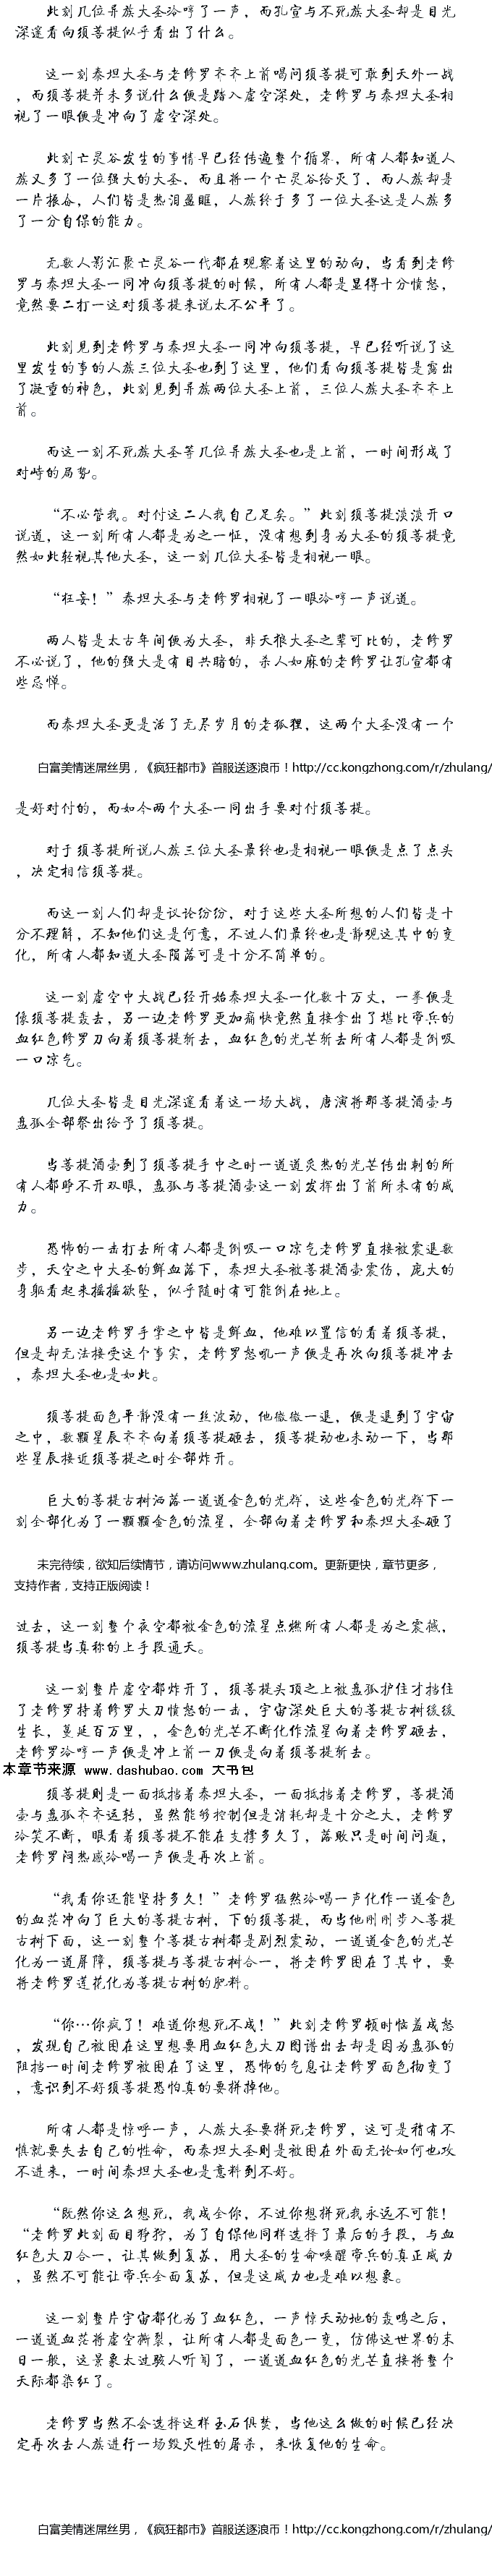 此刻几位异族大圣冷哼了一声，而孔宣与不死族大圣却是目光
深邃看向须菩提似乎看出了什么。
这一刻泰坦大圣与老修罗齐齐上前喝问须菩提可敢到天外一战
，而须菩提并未多说什么便是踏入虚空深处，老修罗与泰坦大圣相
视了一眼便是冲向了虚空深处。
此刻亡灵谷发生的事情早已经传遍整个循界，所有人都知道人
族又多了一位强大的大圣，而且将一个亡灵谷给灭了，而人族却是
一片振奋，人们皆是热泪盈眶，人族终于多了一位大圣这是人族多
了一分自保的能力。
无数人影汇聚亡灵谷一代都在观察着这里的动向，当看到老修
罗与泰坦大圣一同冲向须菩提的时候，所有人都是显得十分愤怒，
竟然要二打一这对须菩提来说太不公平了。
此刻见到老修罗与泰坦大圣一同冲向须菩提，早已经听说了这
里发生的事的人族三位大圣也到了这里，他们看向须菩提皆是露出
了凝重的神色，此刻见到异族两位大圣上前，三位人族大圣齐齐上
前。
而这一刻不死族大圣等几位异族大圣也是上前，一时间形成了
对峙的局势。
“不必管我。对付这二人我自己足矣。”此刻须菩提淡淡开口
说道，这一刻所有人都是为之一怔，没有想到身为大圣的须菩提竟
然如此轻视其他大圣，这一刻几位大圣皆是相视一眼。
“狂妄！”泰坦大圣与老修罗相视了一眼冷哼一声说道。
两人皆是太古年间便为大圣，非天狼大圣之辈可比的，老修罗
不必说了，他的强大是有目共睹的，杀人如麻的老修罗让孔宣都有
些忌惮。
而泰坦大圣更是活了无尽岁月的老狐狸，这两个大圣没有一个
白富美情迷屌丝男，《疯狂都市》首服送逐浪币！http://cc.kongzhong.com/r/zhulang/
是好对付的，而如今两个大圣一同出手要对付须菩提。
对于须菩提所说人族三位大圣最终也是相视一眼便是点了点头
，决定相信须菩提。
而这一刻人们却是议论纷纷，对于这些大圣所想的人们皆是十
分不理解，不知他们这是何意，不过人们最终也是静观这其中的变
化，所有人都知道大圣陨落可是十分不简单的。
这一刻虚空中大战已经开始泰坦大圣一化数十万丈，一拳便是
像须菩提轰去，另一边老修罗更加痛快竟然直接拿出了堪比帝兵的
血红色修罗刀向着须菩提斩去，血红色的光芒斩去所有人都是倒吸
一口凉气。
几位大圣皆是目光深邃看着这一场大战，唐演将那菩提酒壶与
盘弧全部祭出给予了须菩提。
当菩提酒壶到了须菩提手中之时一道道炙热的光芒传出刺的所
有人都睁不开双眼，盘弧与菩提酒壶这一刻发挥出了前所未有的威
力。
恐怖的一击打去所有人都是倒吸一口凉气老修罗直接被震退数
步，天空之中大圣的鲜血落下，泰坦大圣被菩提酒壶震伤，庞大的
身躯看起来摇摇欲坠，似乎随时有可能倒在地上。
另一边老修罗手掌之中皆是鲜血，他难以置信的看着须菩提，
但是却无法接受这个事实，老修罗怒吼一声便是再次向须菩提冲去
，泰坦大圣也是如此。
须菩提面色平静没有一丝波动，他微微一退，便是退到了宇宙
之中，数颗星辰齐齐向着须菩提砸去，须菩提动也未动一下，当那
些星辰接近须菩提之时全部炸开。
巨大的菩提古树洒落一道道金色的光辉，这些金色的光辉下一
刻全部化为了一颗颗金色的流星，全部向着老修罗和泰坦大圣砸了
未完待续，欲知后续情节，请访问www.zhulang.com。更新更快，章节更多，
支持作者，支持正版阅读！
过去，这一刻整个夜空都被金色的流星点燃所有人都是为之震撼，
须菩提当真称的上手段通天。
这一刻整片虚空都炸开了，须菩提头顶之上被盘弧护住才挡住
了老修罗持着修罗大刀愤怒的一击，宇宙深处巨大的菩提古树缓缓
生长，蔓延百万里，，金色的光芒不断化作流星向着老修罗砸去，
老修罗冷哼一声便是冲上前一刀便是向着须菩提斩去。
本章节来源 www.dashubao.com 大书包
须菩提则是一面抵挡着泰坦大圣，一面抵挡着老修罗，菩提酒
壶与盘弧齐齐运转，虽然能够控制但是消耗却是十分之大，老修罗
冷笑不断，眼看着须菩提不能在支撑多久了，落败只是时间问题，
老修罗闷热感冷喝一声便是再次上前。
“我看你还能坚持多久！”老修罗猛然冷喝一声化作一道金色
的血茫冲向了巨大的菩提古树，下的须菩提，而当他刚刚步入菩提
古树下面，这一刻整个菩提古树都是剧烈震动，一道道金色的光芒
化为一道屏障，须菩提与菩提古树合一，将老修罗困在了其中，要
将老修罗莲花化为菩提古树的肥料。
“你…你疯了！难道你想死不成！”此刻老修罗顿时恼羞成怒
，发现自己被困在这里想要用血红色大刀图谱出去却是因为盘弧的
阻挡一时间老修罗被困在了这里，恐怖的气息让老修罗面色物变了
，意识到不好须菩提恐怕真的要拼掉他。
所有人都是惊呼一声，人族大圣要拼死老修罗，这可是稍有不
慎就要失去自己的性命，而泰坦大圣则是被困在外面无论如何也攻
不进来，一时间泰坦大圣也是意料到不好。
“既然你这么想死，我成全你，不过你想拼死我永远不可能！
“老修罗此刻面目狰狞，为了自保他同样选择了最后的手段，与血
红色大刀合一，让其做到复苏，用大圣的生命唤醒帝兵的真正威力
，虽然不可能让帝兵全面复苏，但是这威力也是难以想象。
这一刻整片宇宙都化为了血红色，一声惊天动地的轰鸣之后，
一道道血茫将虚空撕裂，让所有人都是面色一变，仿佛这世界的末
日一般，这景象太过骇人听闻了，一道道血红色的光芒直接将整个
天际都染红了。
老修罗当然不会选择这样玉石俱焚，当他这么做的时候已经决
定再次去人族进行一场毁灭性的屠杀，来恢复他的生命。
白富美情迷屌丝男，《疯狂都市》首服送逐浪币！http://cc.kongzhong.com/r/zhulang/